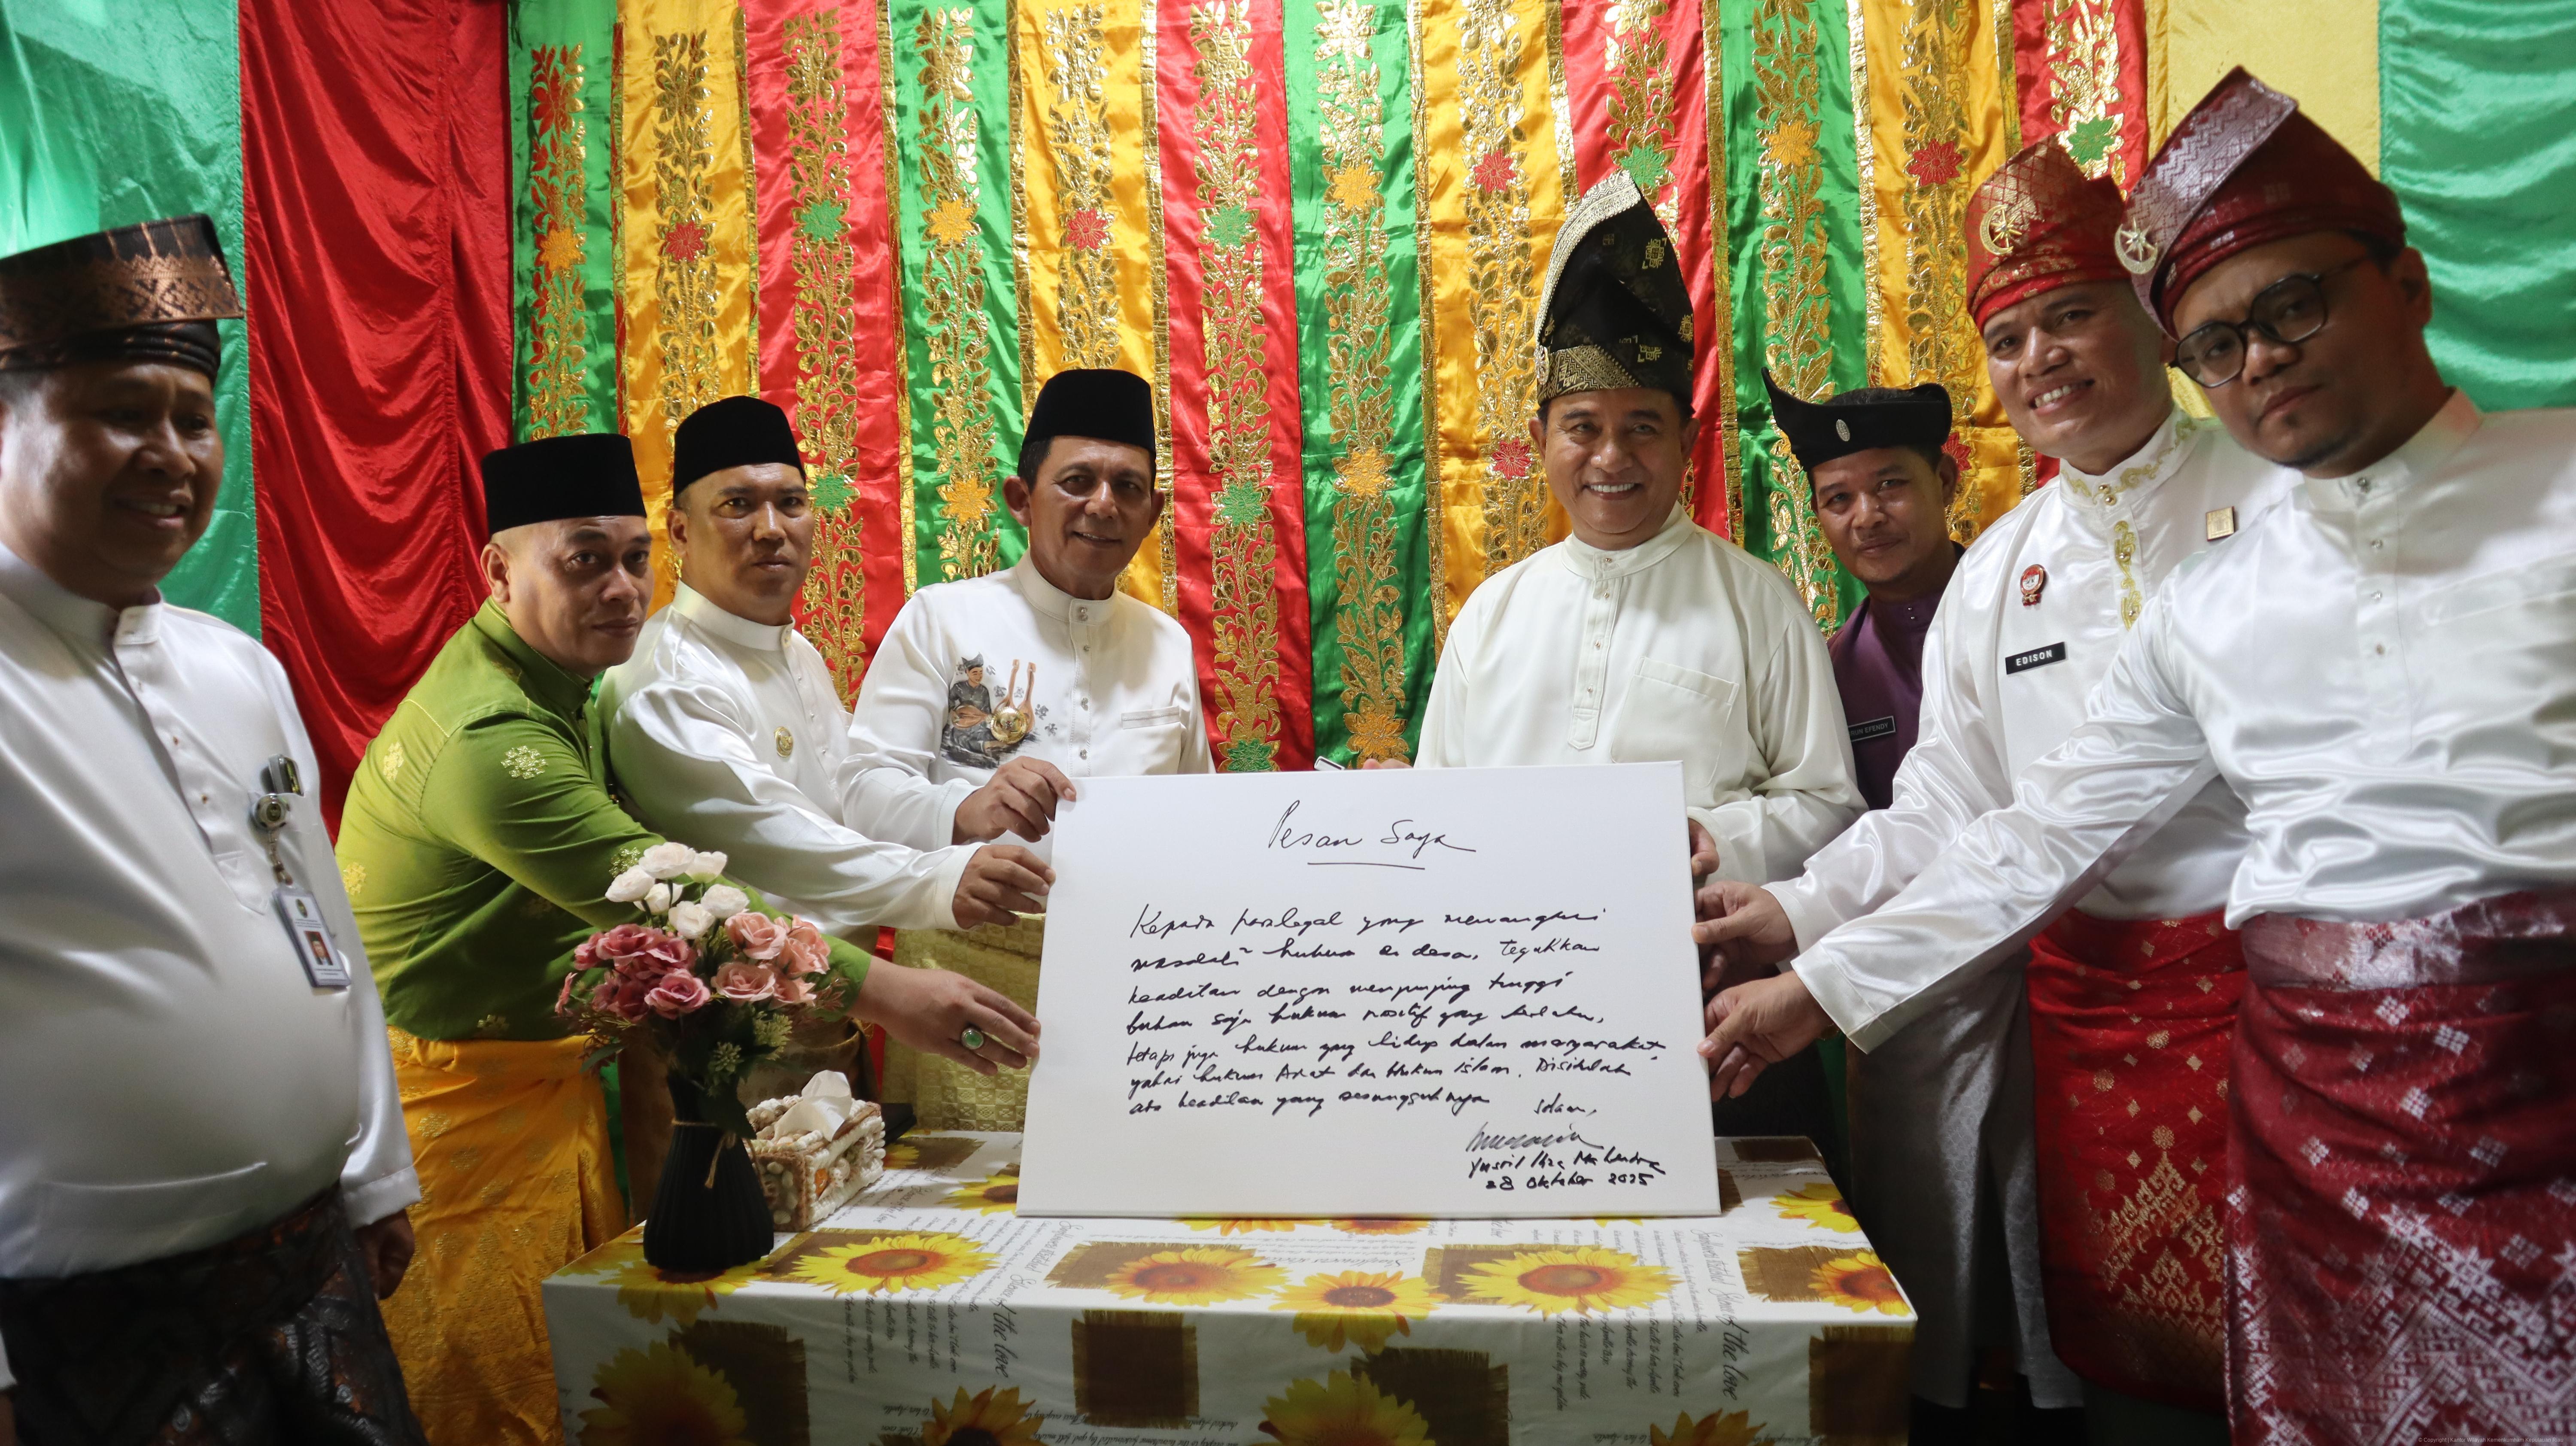 Pesan Saya
Kepada paralegal yang menangani
masalah hukum di desa, Tegakkan
keadilan dengan menjunjung tinggi
bukan saja hukum positif yang berlaku,
tetapi juga hukum yang hidup dalam masyarakat,
yakni hukum Adat dan Hukum islam. Disitulah
ada keadilan yang sesungguhnya
Salam,
Yusril Ihza Mahendra
28 Oktober 2025
EDISON
RUN EFENDY
Story of the love
Story of the love